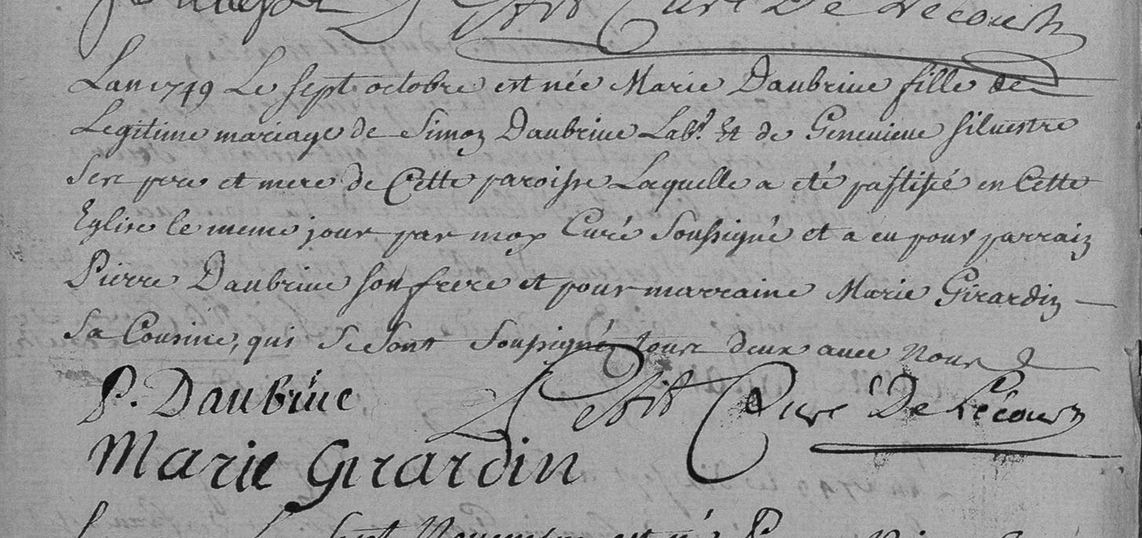 Petit Curé De Lécourt
Lan 1749 Le sept octobre est née Marie Daubrive fille de
Legitime mariage de Simon Daubrive Labr. Et de Genevieve silvestre
Ses pere et mere de Cette paroisse Laquelle a eté pastisé en Cette
Eglise le meme jour par moy Curé Soussigné et a eu pour parrain
Pierre Daubrive son frere et pour marraine Marie Girardin
Sa Cousine, qui Se Sont Soussignés tous deux avec Nous
P. Daubrive Petit Curé De Lécourt
Marie Girardin